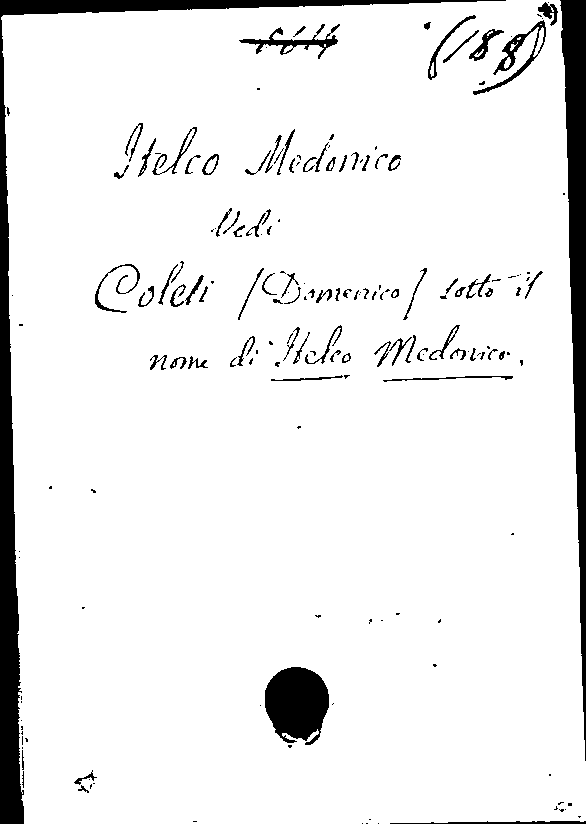 (188)
Itelco Medonico
Vedi
Coleti /Domenico/ sotto il
nome di Itelco Medonico.